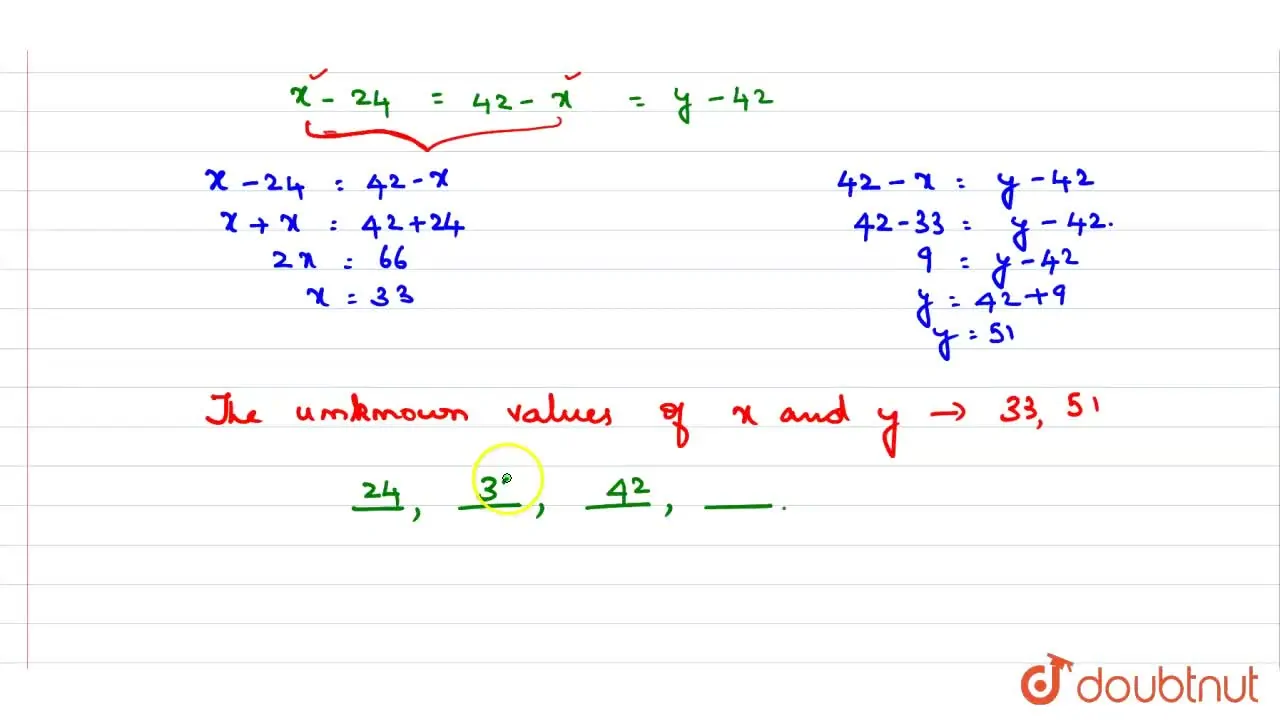 x - 24 = 42 - x = y - 42
x - 24 = 42 - x
x + x = 42 + 24
2x = 66
x = 33
42 - x = y - 42
42 - 33 = y - 42.
9 = y - 42
y = 42 + 9
y = 51
The unknown values of x and y → 33, 51
24, 3 , 42, ___.
doubtnut